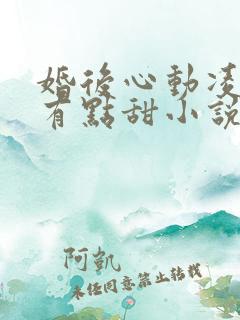 婚後心動凌
有點甜小說
阿凱
未经同意禁止转载